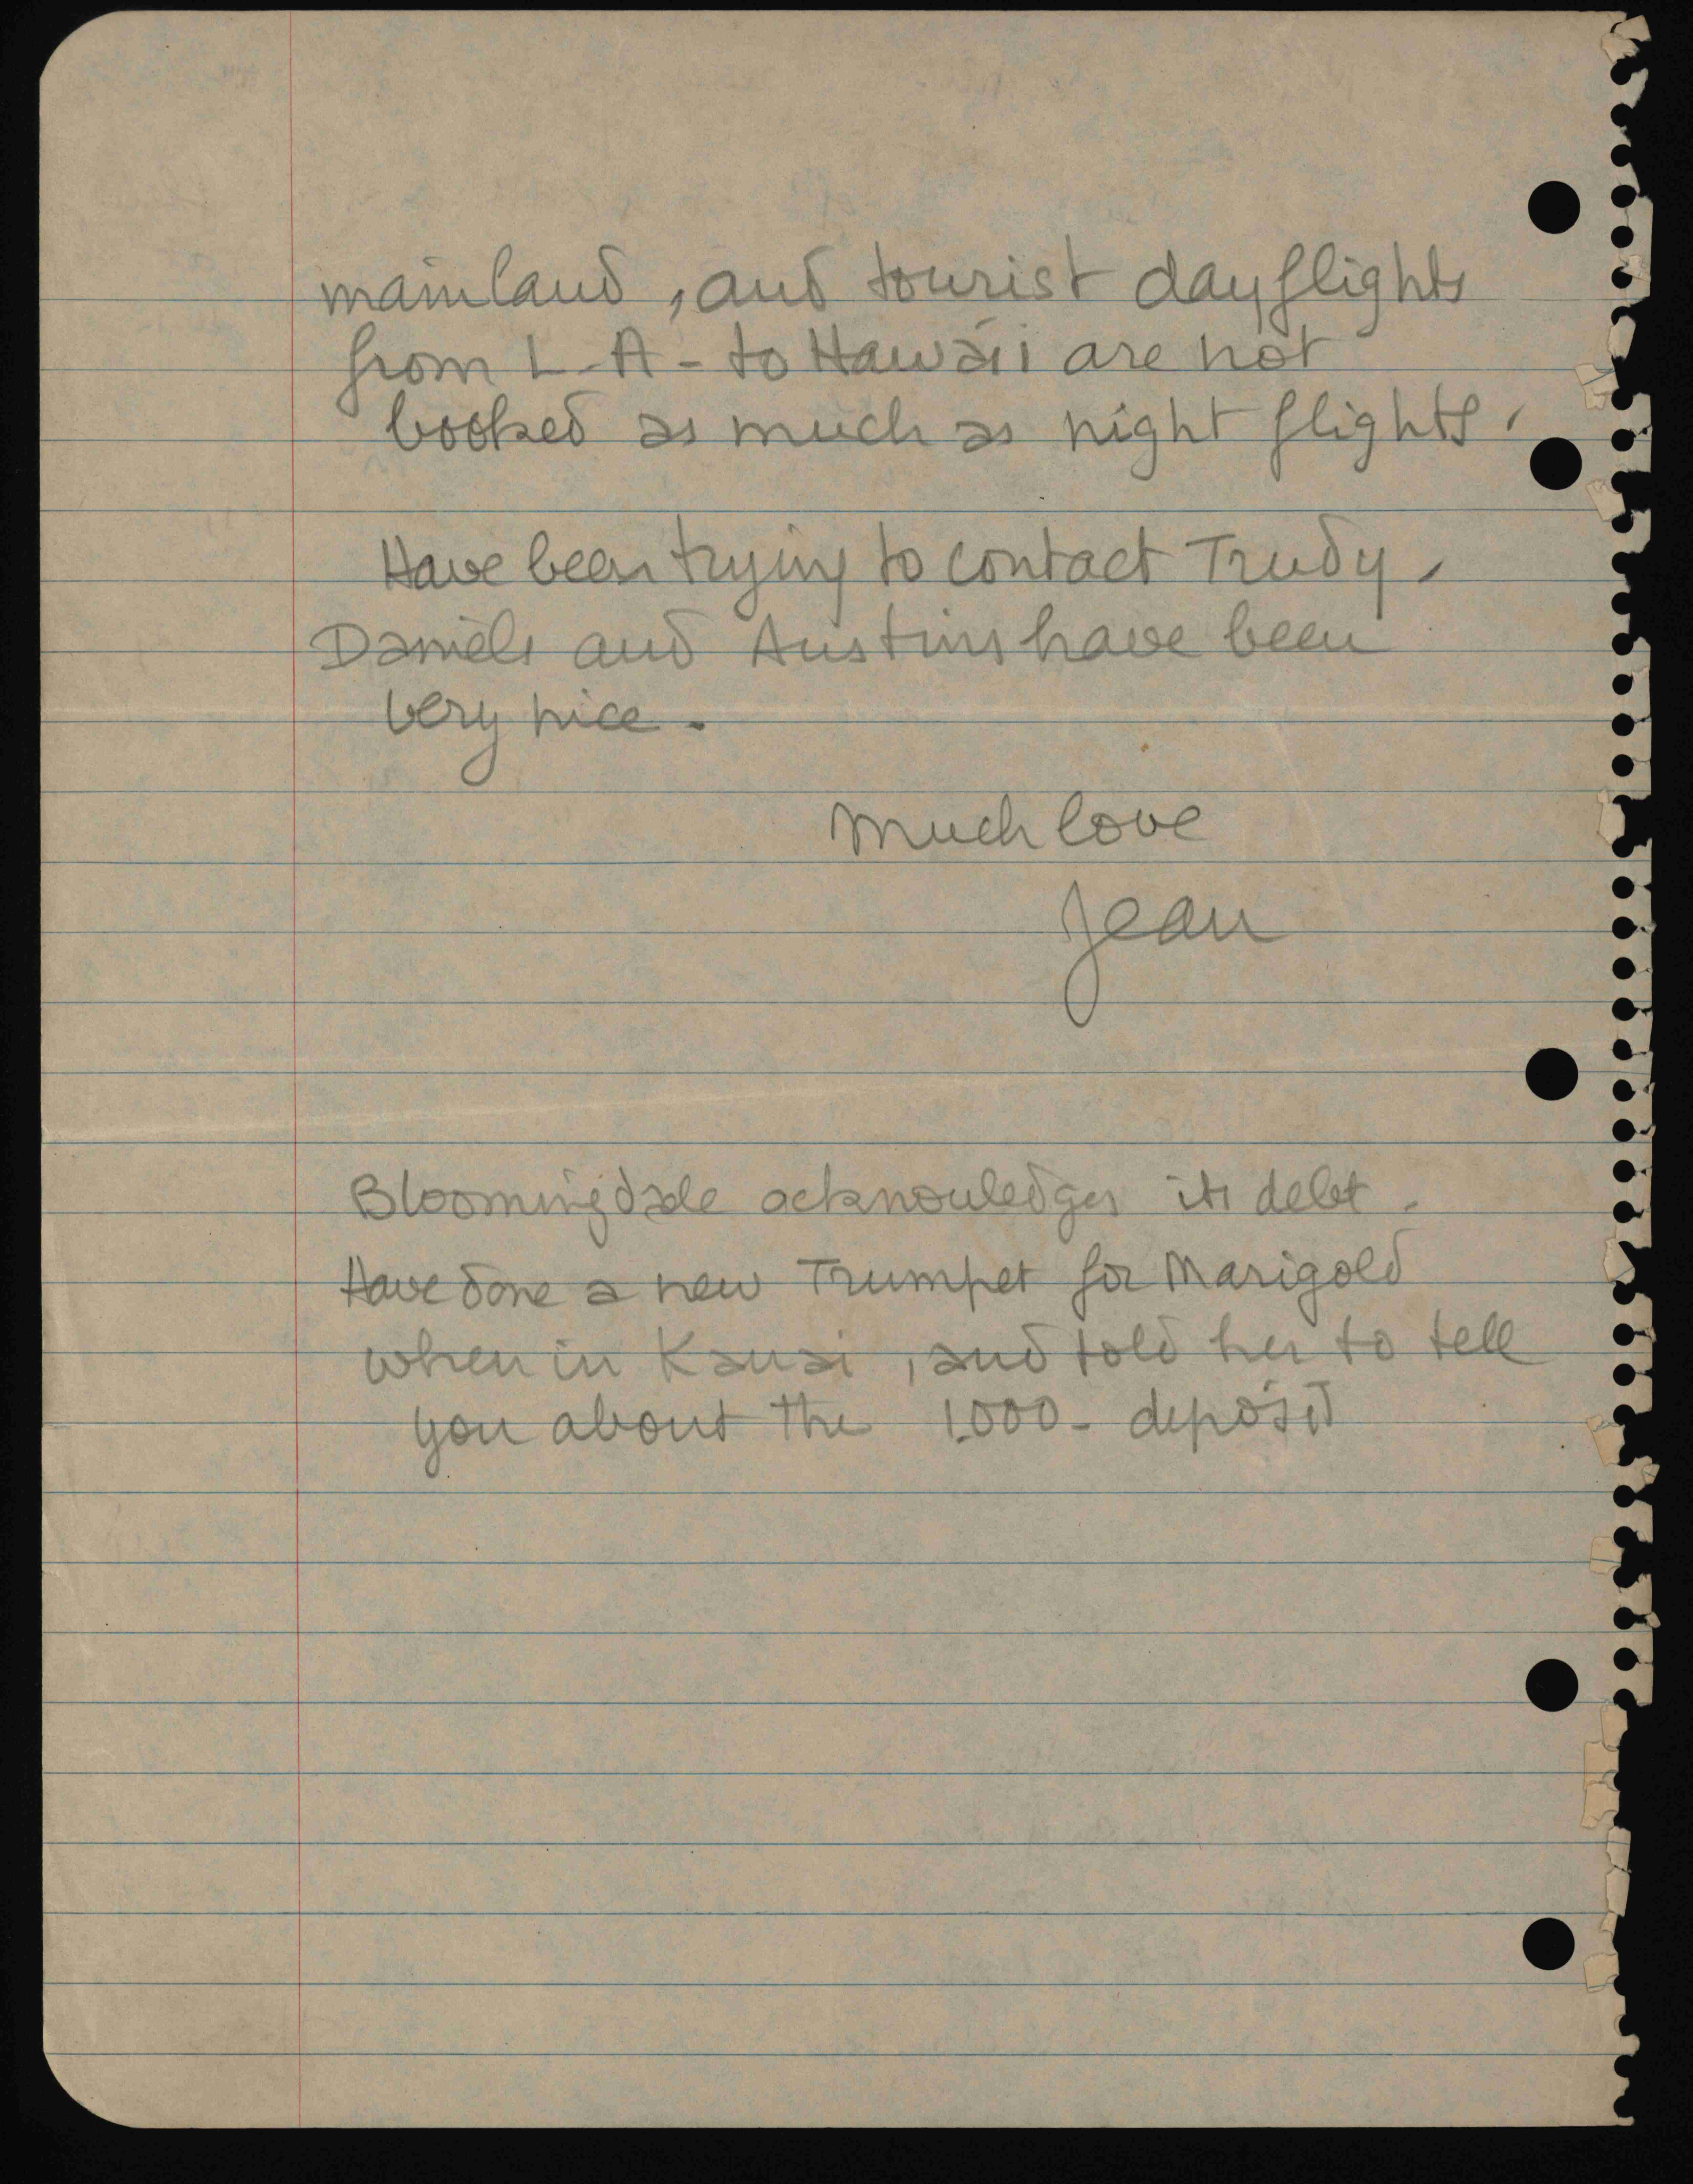 mainland, and tourist day flights
from L-A- to Hawaii are not
booked as much as night flights.
Have been trying to contact Trudy.
Daniels and Austins have been
very nice.
Much love
Jean
Bloomingdale acknowledges its debt.
Have done a new Trumpet for Marigold
when in Kauai, and told her to tell
you about the 1.000- deposit